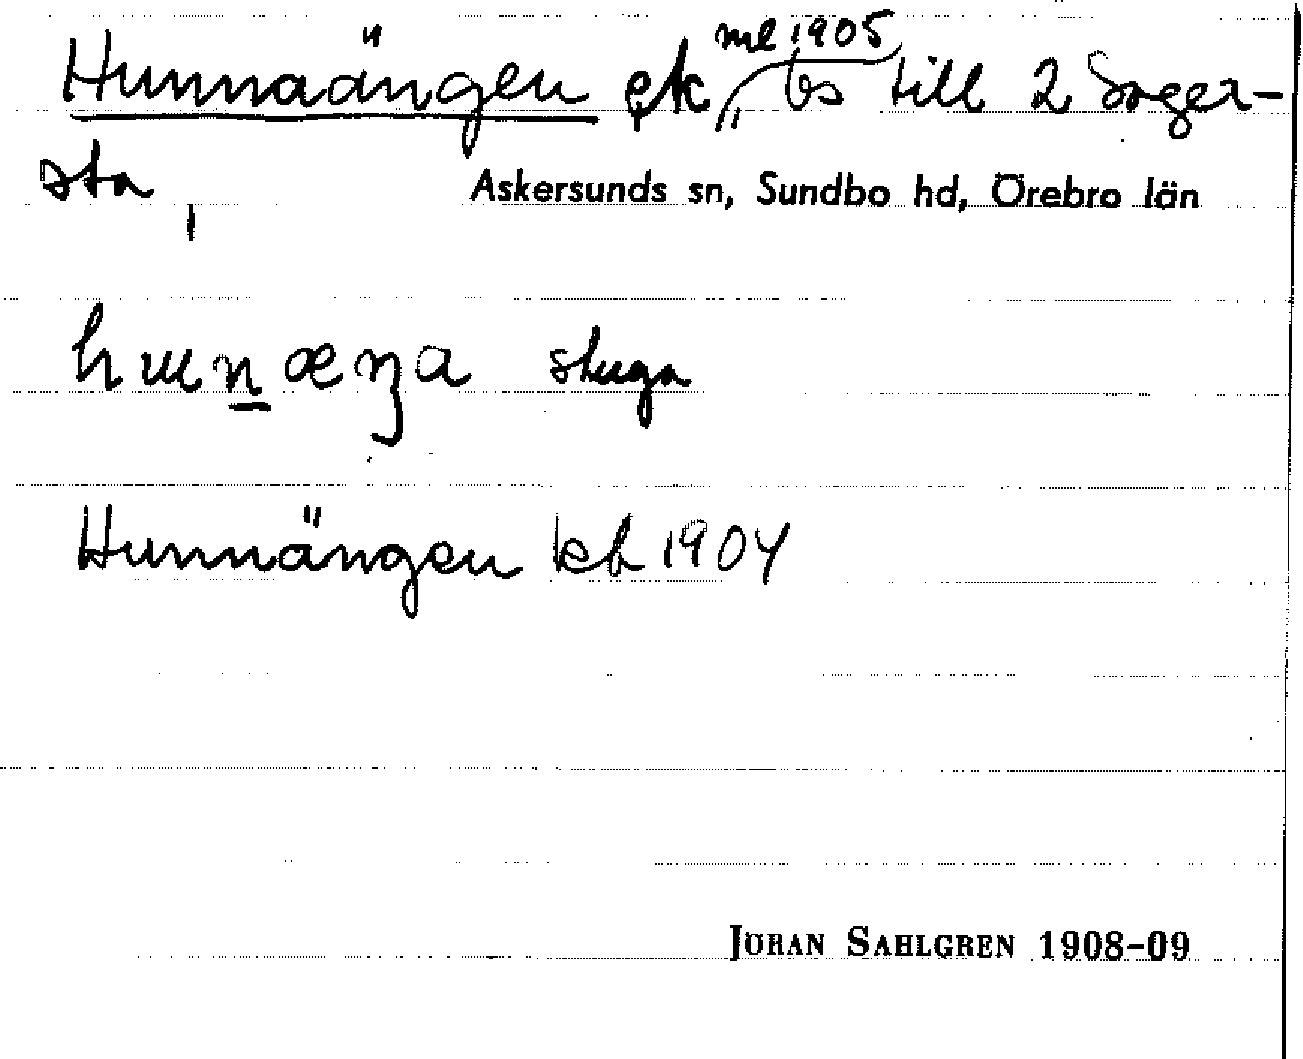 Hunnaängen ek, ml 1905 bs till 2 Sager-
sta,
Askersunds sn, Sundbo hd, Örebro län
stuga
Hunnängen kb 1904
JÖRAN SAHLGREN 1908-09